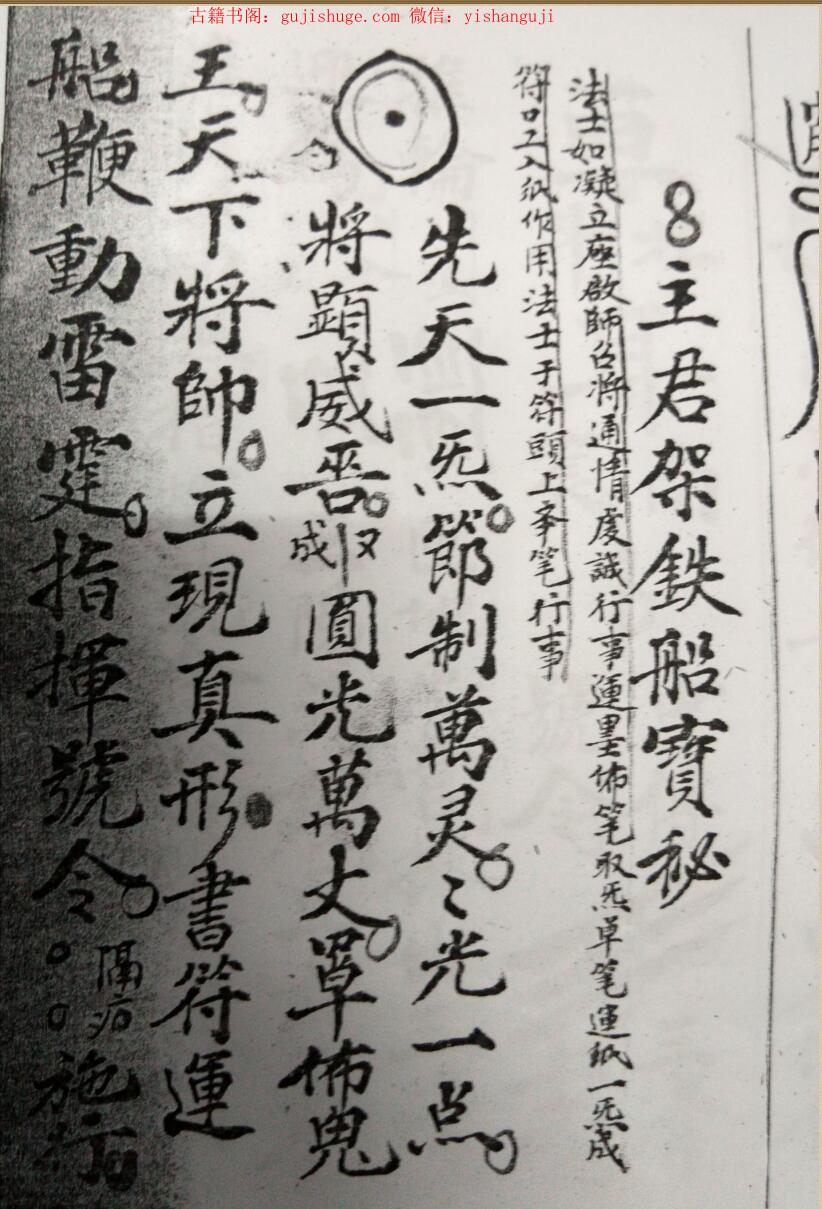 古籍书阁：gujishuge.com 微信：yishanguji
8主君架鉄船寶秘
法士如凝立座啟師召将通情虔誠行事運墨佈笔取炁草笔運紙一炁成
符口工入紙作用法士于符頭上夆笔行事
先天一炁節制萬灵〻光一点
將顕威音収成圓光萬丈罩佈鬼
王天下將帥立現真形書符運
船鞭動雷霆指揮號令 隔 施行